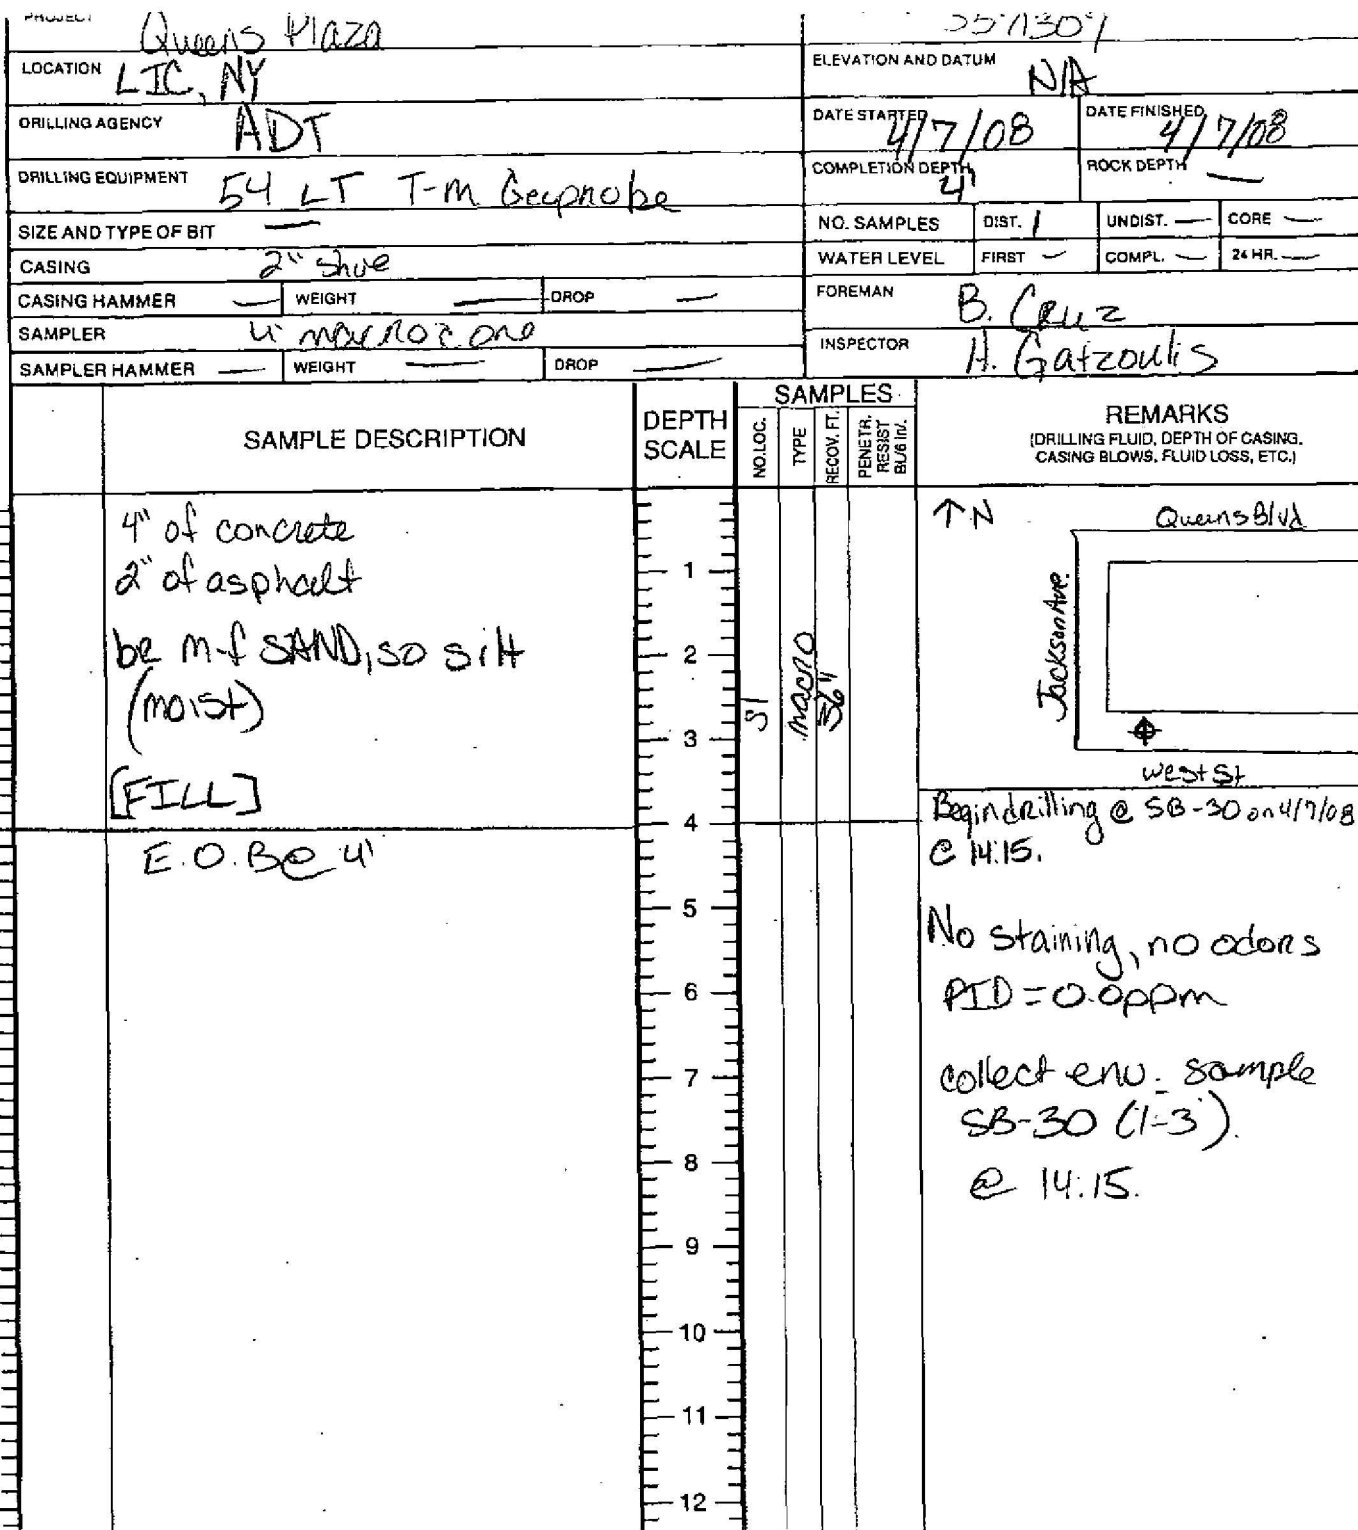 PROJECT Queens Plaza
LOCATION LIC, NY
ELEVATION AND DATUM N/A
DRILLING AGENCY ADT
DATE STARTED 4/7/08 DATE FINISHED 4/7/08
DRILLING EQUIPMENT 54 LT T-M Geoprobe
COMPLETION DEPTH 4' ROCK DEPTH —
SIZE AND TYPE OF BIT —
NO. SAMPLES DIST. 1 UNDIST. — CORE —
CASING 2" shoe
WATER LEVEL FIRST — COMPL. — 24 HR. —
CASING HAMMER — WEIGHT — DROP —
FOREMAN B. Cruz
SAMPLER 4' macrocore
INSPECTOR H. Gatzoulis
SAMPLER HAMMER — WEIGHT — DROP —
SAMPLE DESCRIPTION
DEPTH SCALE
SAMPLES
NO.LOC. TYPE RECOV. FT. PENETR. RESIST BL/6 in/.
REMARKS
(DRILLING FLUID, DEPTH OF CASING,
CASING BLOWS, FLUID LOSS, ETC.)
4" of concrete
2" of asphalt
br m-f SAND, so silt
(moist)
[FILL]
E.O.B @ 4'
1
2
3
4
5
6
7
8
9
10
11
12
S1
macro
36"
↑N
Queens Blvd
Jackson Ave.
West St
Begin drilling @ SB-30 on 4/7/08
@ 14:15.
No staining, no odors
PID = 0.0ppm
collect env. sample
SB-30 (1-3').
@ 14:15.